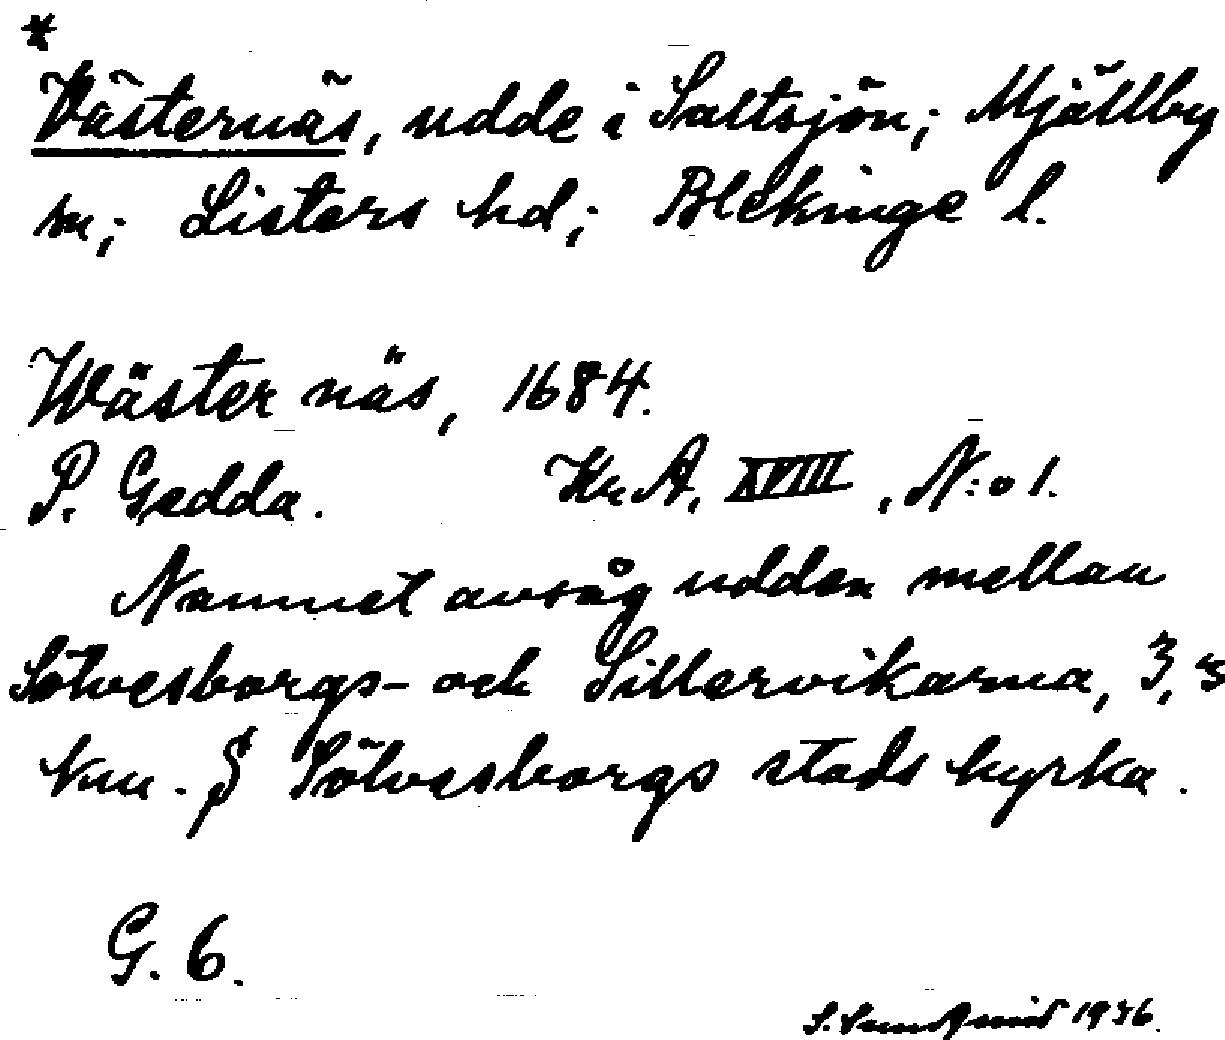 *
Västernäs, udde i Saltsjön; Mjällby
sn; Listers hd; Blekinge l.
Wäster näs, 1684.
P. Gedda. Kr. A. XVIII, N:o 1.
Namnet avsåg udden mellan
Sölvesborgs- och Sillervikarna, 3,3
km. S Sölvesborgs stads kyrka.
G. 6.
1936.